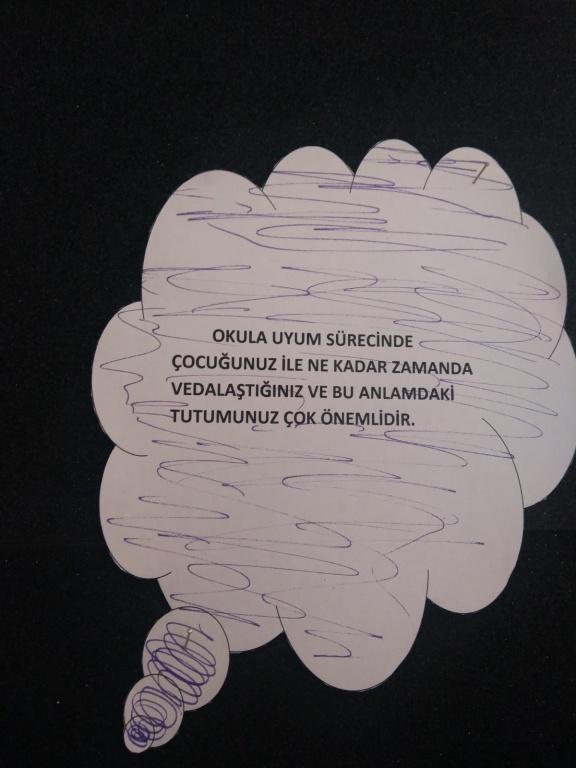 OKULA UYUM SÜRECİNDE
ÇOCUĞUNUZ İLE NE KADAR ZAMANDA
VEDALAŞTIĞINIZ VE BU ANLAMDAKİ
TUTUMUNUZ ÇOK ÖNEMLİDİR.